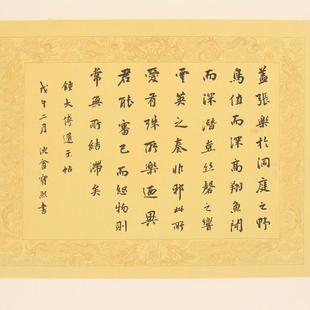 蓋張樂於洞庭之野
鳥值而深高翔魚聞
而深潛豈絲磬之響
雲英之奏非耶此所
愛有殊所樂迺異
君能審己而恕物則
常無所結滯矣
鍾太傅還示帖
戊午二月 沈 寶熙書